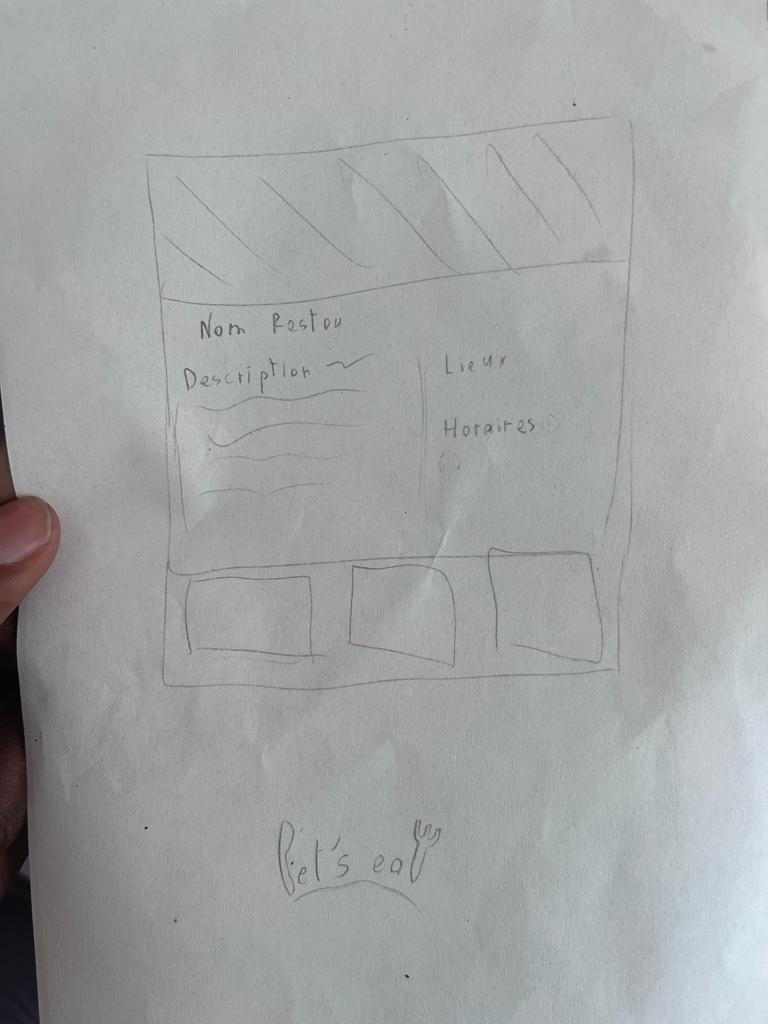 Nom Restou
Description
Lieux
Horaires
Let's eat